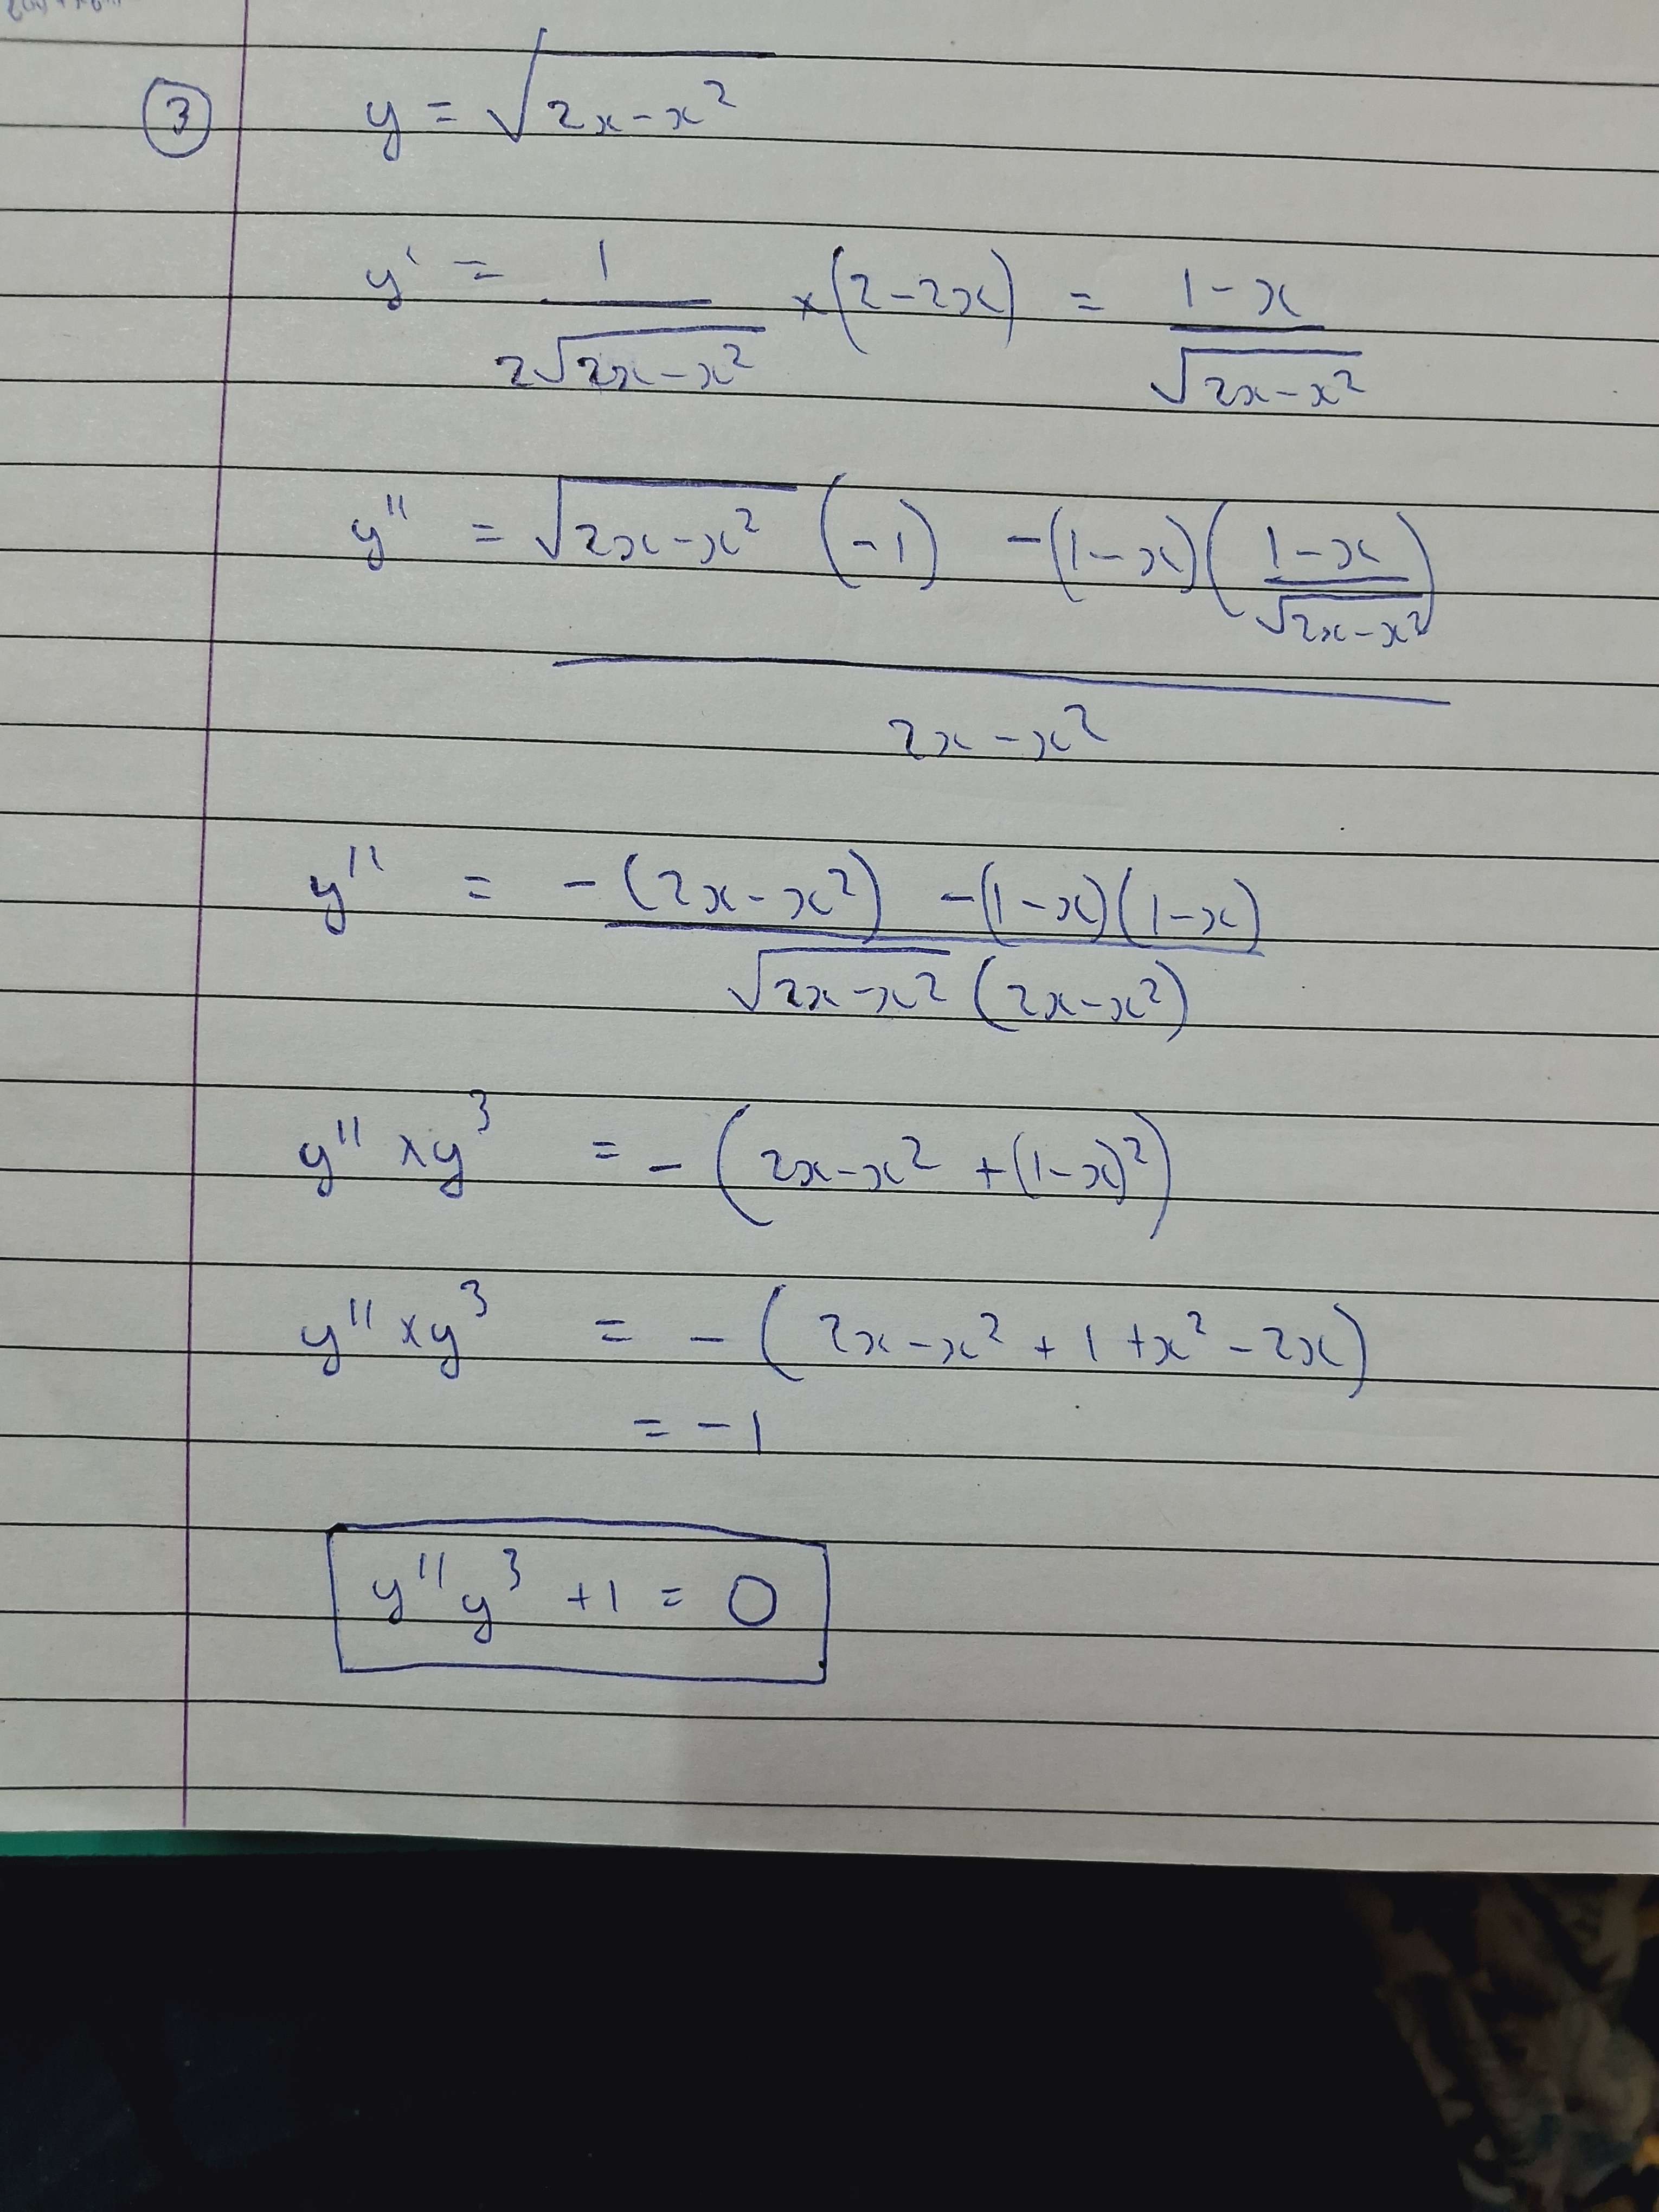 ③ y = √(2x-x²)
y' = 1/(2√(2x-x²)) ×(2-2x) = (1-x)/√(2x-x²)
y'' = (√(2x-x²) (-1) -(1-x)((1-x)/√(2x-x²)))/(2x-x²)
y'' = (-(2x-x²) -(1-x)(1-x))/(√(2x-x²) (2x-x²))
y'' ×y³ = -(2x-x² +(1-x)²)
y'' ×y³ = -(2x-x² + 1 +x² -2x)
= -1
y''y³ +1 = 0